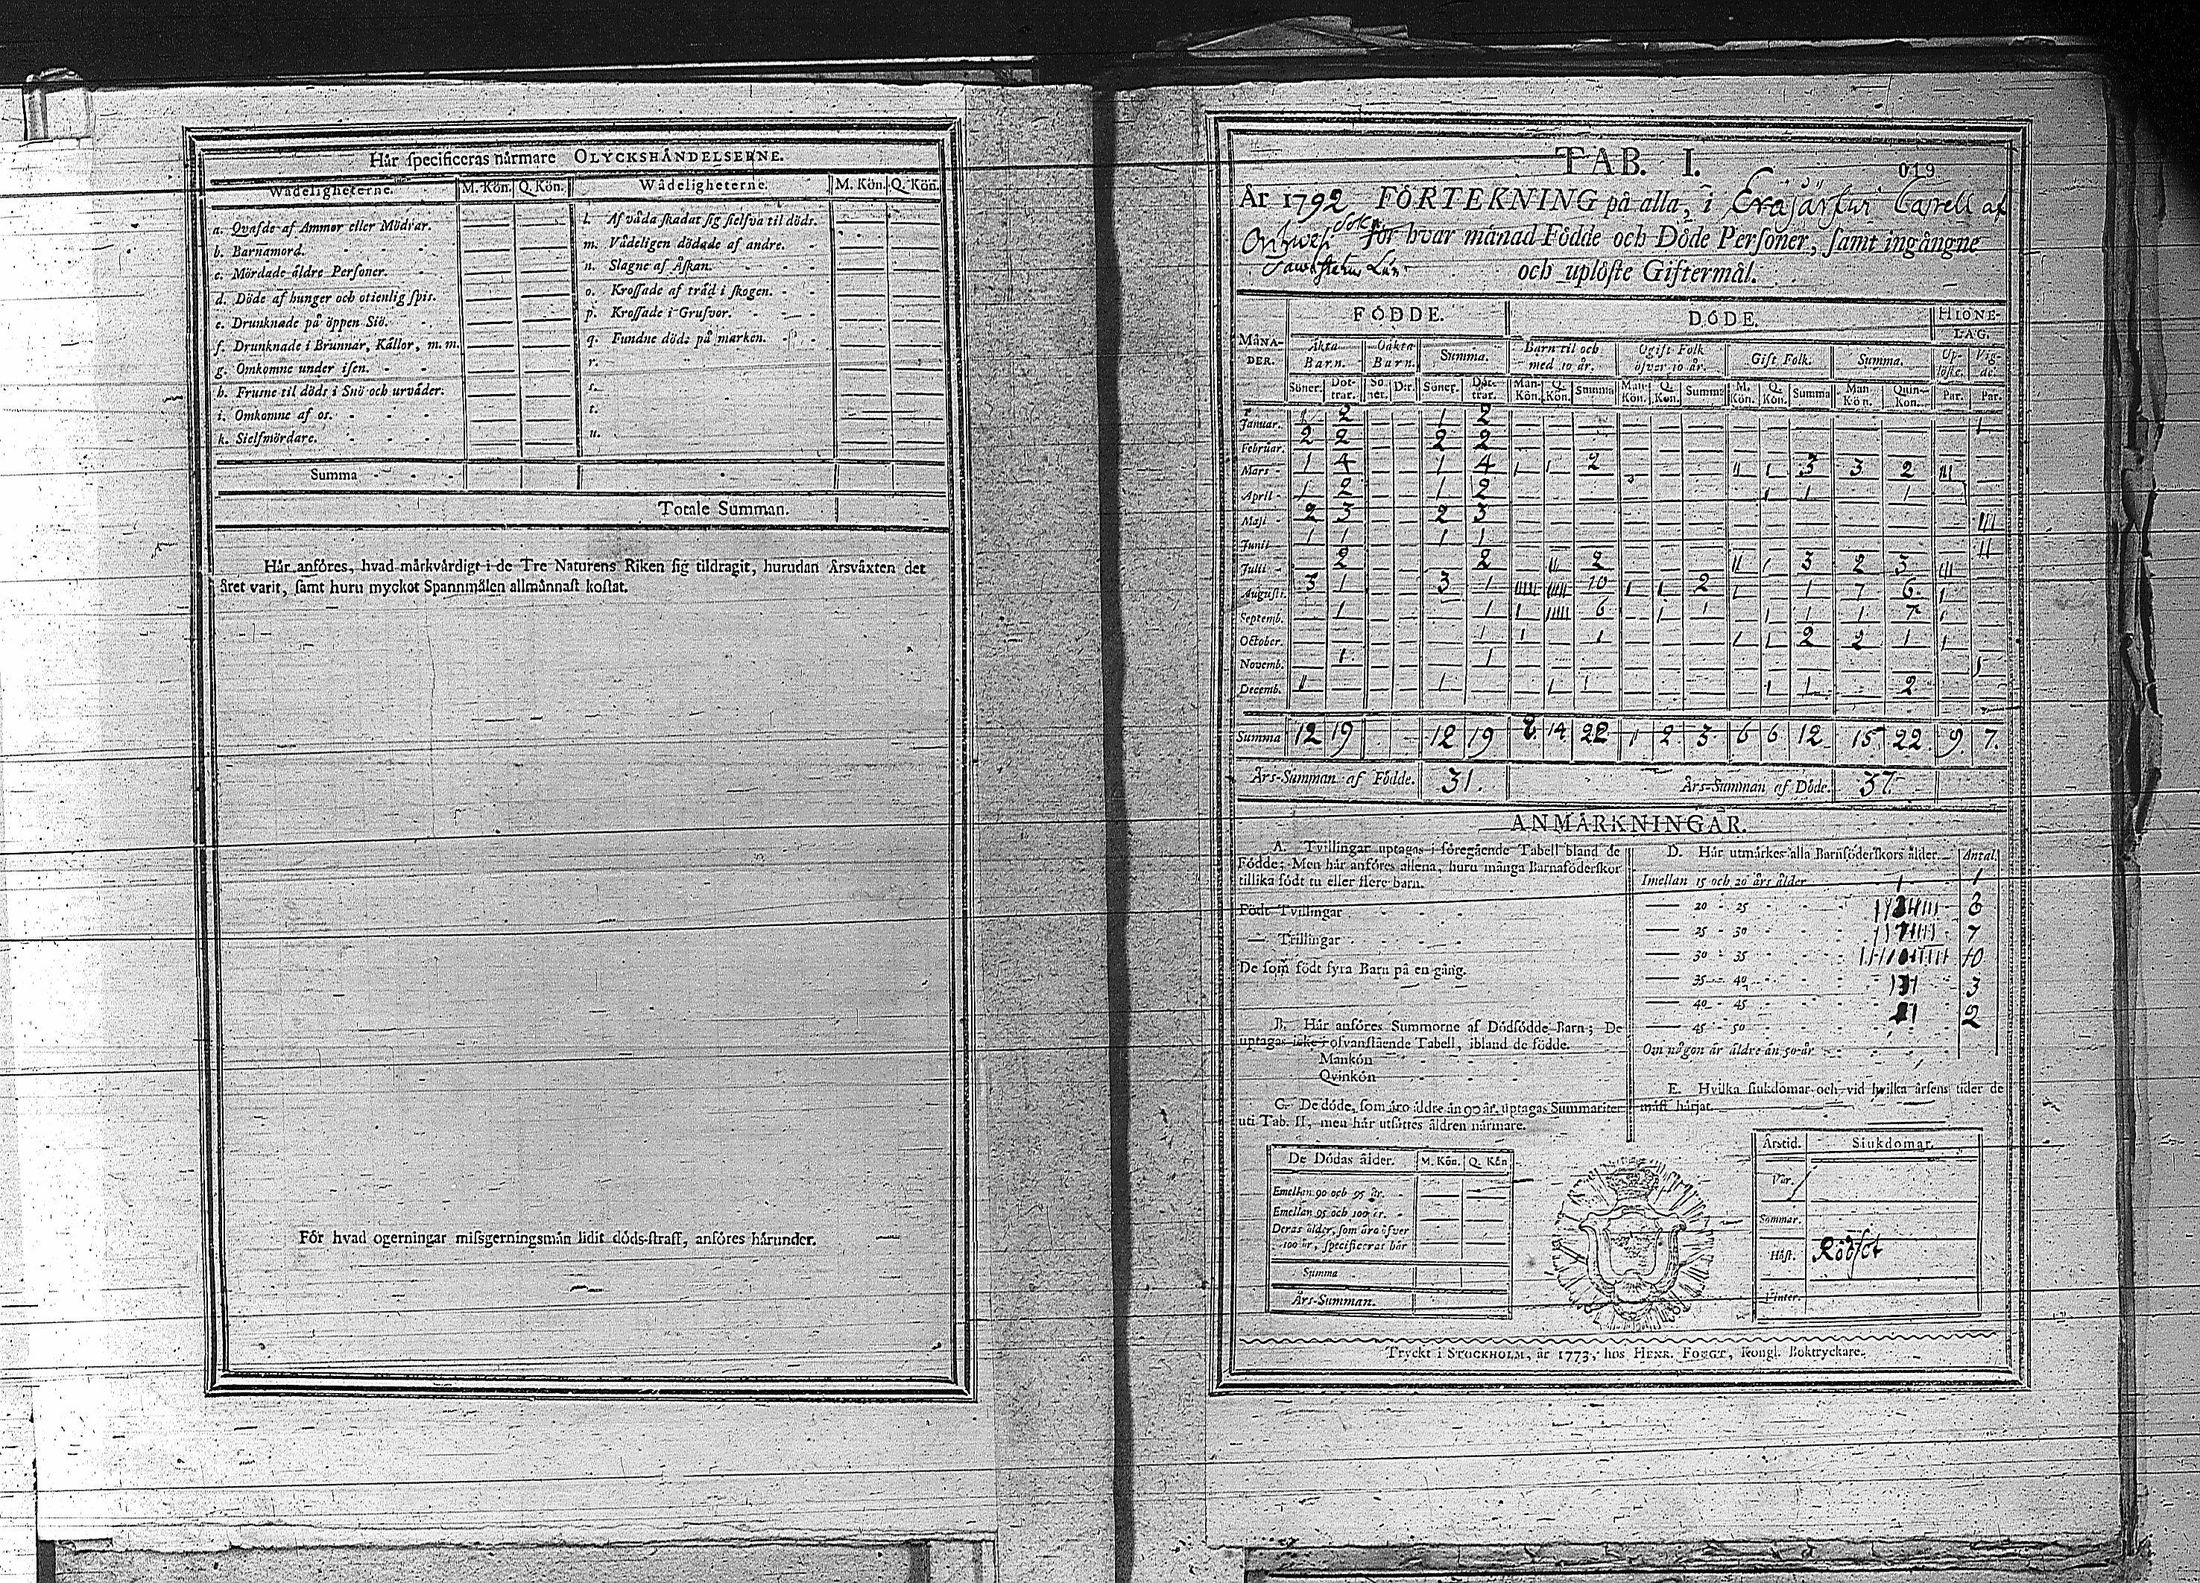 Hår specificeras nårmare OLYCKSHÅNDELSERNE.
Wådeligheterne. M. Kön. Q. Kön. Wådeligheterne. M. Kön. Q. Kön.
a. Qvafde af Ammor eller Mödrar.
b. Barnamord.
c. Mördade åldre Personer.
d. Döde af hunger och otienlig spis.
e. Drunknade på öppen Siö.
f. Drunknade i Brunnar, Kållor, m. m.
g. Omkomne under isen.
h. Frusne til döds i Snö och urvåder.
i. Omkomne af os.
k. Sielfmördare.
l. Af våda skadat sig sielfva til döds.
m. Vådeligen dödade af andre.
n. Slagne af Åskan.
o. Krossade af tråd i skogen.
p. Krossade i Grufvor.
q. Fundne döde på marken.
r.
s.
t.
u.
Summa
Totale Summan.
Hår anföres, hvad mårkvårdigt i de Tre Naturens Riken sig tildragit, hurudan Årsvåxten det
året varit, samt huru myckot Spannmålen allmånnast kostat.
För hvad ogerningar missgerningsmån lidit döds-straff, anföres hårunder.
TAB. I.
019
År 1792 FÖRTEKNING på alla, i Eräjärfwi Capell af
Orihvesi Sokn för hvar månad Födde och Döde Personer, samt ingångne
Tawastehus Län och uplöste Giftermål.
MÅNADER. FÖDDE. DÖDE. HIONELAG.
Åkta Barn. Oåkta Barn. Summa. Barn til och med 10 år. Ogift Folk öfver 10 år. Gift Folk. Summa. Uplöste. Vigde.
Söner. Döttrar. Söner. Dtr. Söner. Döttrar. Man-Kön. Q. Kön. Summa Man-Kön. Q. Kön. Summa M. Kön. Q. Kön. Summa Man Kön. Quin-Kön. Par. Par.
Januar. 1 2 — — 1 2 — — — — — — — — — — — — 1
Februar. 2 2 — — 2 2 — — — — — — — — — — — — —
Mars 1 4 — — 1 4 1 1 2 — — — II 1 3 3 2 III —
April 1 2 — — 1 2 — — — — — — — 1 1 — 1 — —
Maji 2 3 — — 2 3 — — — — — — — — — — — — III
Junii 1 1 — — 1 1 — — — — — — — — — — — — II
Julii — 2 — — — 2 — II 2 — — — II 1 3 2 3 III —
Augusti. 3 1 — — 3 1 IIIII IIIII 10 1 1 2 1 — 1 7 6 1 —
Septemb. — 1 — — — 1 1 IIIII 6 — 1 1 — 1 1 1 7 1 —
October. — — — — — 1 1 — 1 — — — 1 1 2 2 1 1 —
Novemb. — 1 — — — 1 — — — — — — — — — — — — 1
Decemb. 1 — — — 1 — — 1 1 — — — — 1 1 — 2 — —
Summa 12 19 12 19 8. 14 22 1 2 3 6 6 12 15 22 9. 7.
Års-Summan af Födde. 31. Års-Summan af Döde. 37.
ANMÅRKNINGAR.
A. Tvillingar uptagas i föregående Tabell bland de
Födde; Men hår anföres allena, huru många Barnaföderskor
tillika födt tu eller flere barn.
Födt Tvillingar
— Trillingar
De som födt fyra Barn på en gång.
B. Hår anföres Summorne af Dödfödde Barn; De
uptagas icke i ofvanstående Tabell, ibland de födde.
Mankön
Qvinkön
C. De döde, som åro åldre ån 90 år, uptagas Summariter
uti Tab. II, men hår utsåttes åldren nårmare.
De Dödas ålder. M. Kön. Q. Kön
Emellan 90 och 95 år.
Emellan 95 och 100 år.
Deras ålder, som åro öfver
100 år, specificerat hår
Summa
Års-Summan.
D. Hår utmårkes alla Barnföderskors ålder. Antal.
Imellan 15 och 20 års ålder 1 1
— 20 - 25 8
— 25 - 30 7
— 30 - 35 10
— 35 - 40 3
— 40 - 45 2
— 45 - 50
Om någon år åldre ån 50 år
E. Hvilka siukdomar och vid hvilka årsens tider de
måst hårjat.
Årstid. Siukdomar.
Vår.
Sommar.
Höst. Rödsot
Vinter.
Tryckt i STOCKHOLM, år 1773, hos HENR. FOUGT, Kongl. Boktryckare.